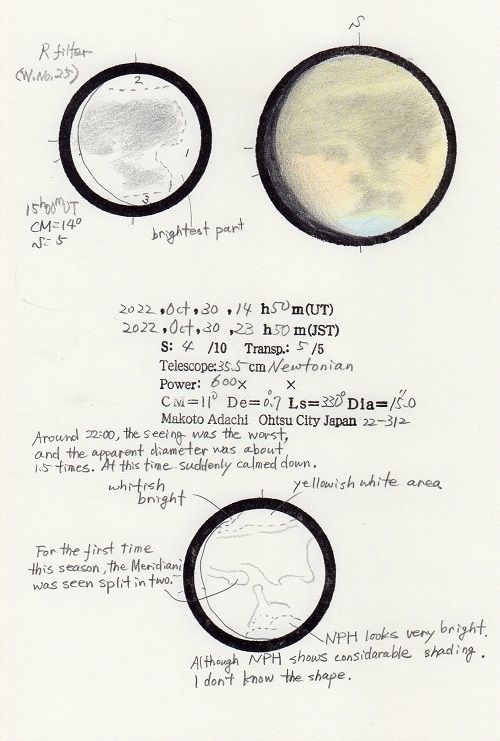 R filter
(W.No.25)
S
2
1
3
15h00m UT
CM=14°
S=5
brightest part
2022,Oct,30,14h50m(UT)
2022,Oct,30,23h50m(JST)
S: 4 /10 Transp.: 5 /5
Telescope:35.5cm Newtonian
Power: 600× ×
CM=11° De=0.°7 Ls=330° Dia=15.″0
Makoto Adachi Ohtsu City Japan 22-312
Around 22:00, the seeing was the worst,
and the apparent diameter was about
1.5 times. At this time suddenly calmed down.
whitish
bright
yellowish white area
For the first time
this season, the Meridiani
was seen split in two.
NPH looks very bright.
Although NPH shows considarable shading.
I don't know the shape.